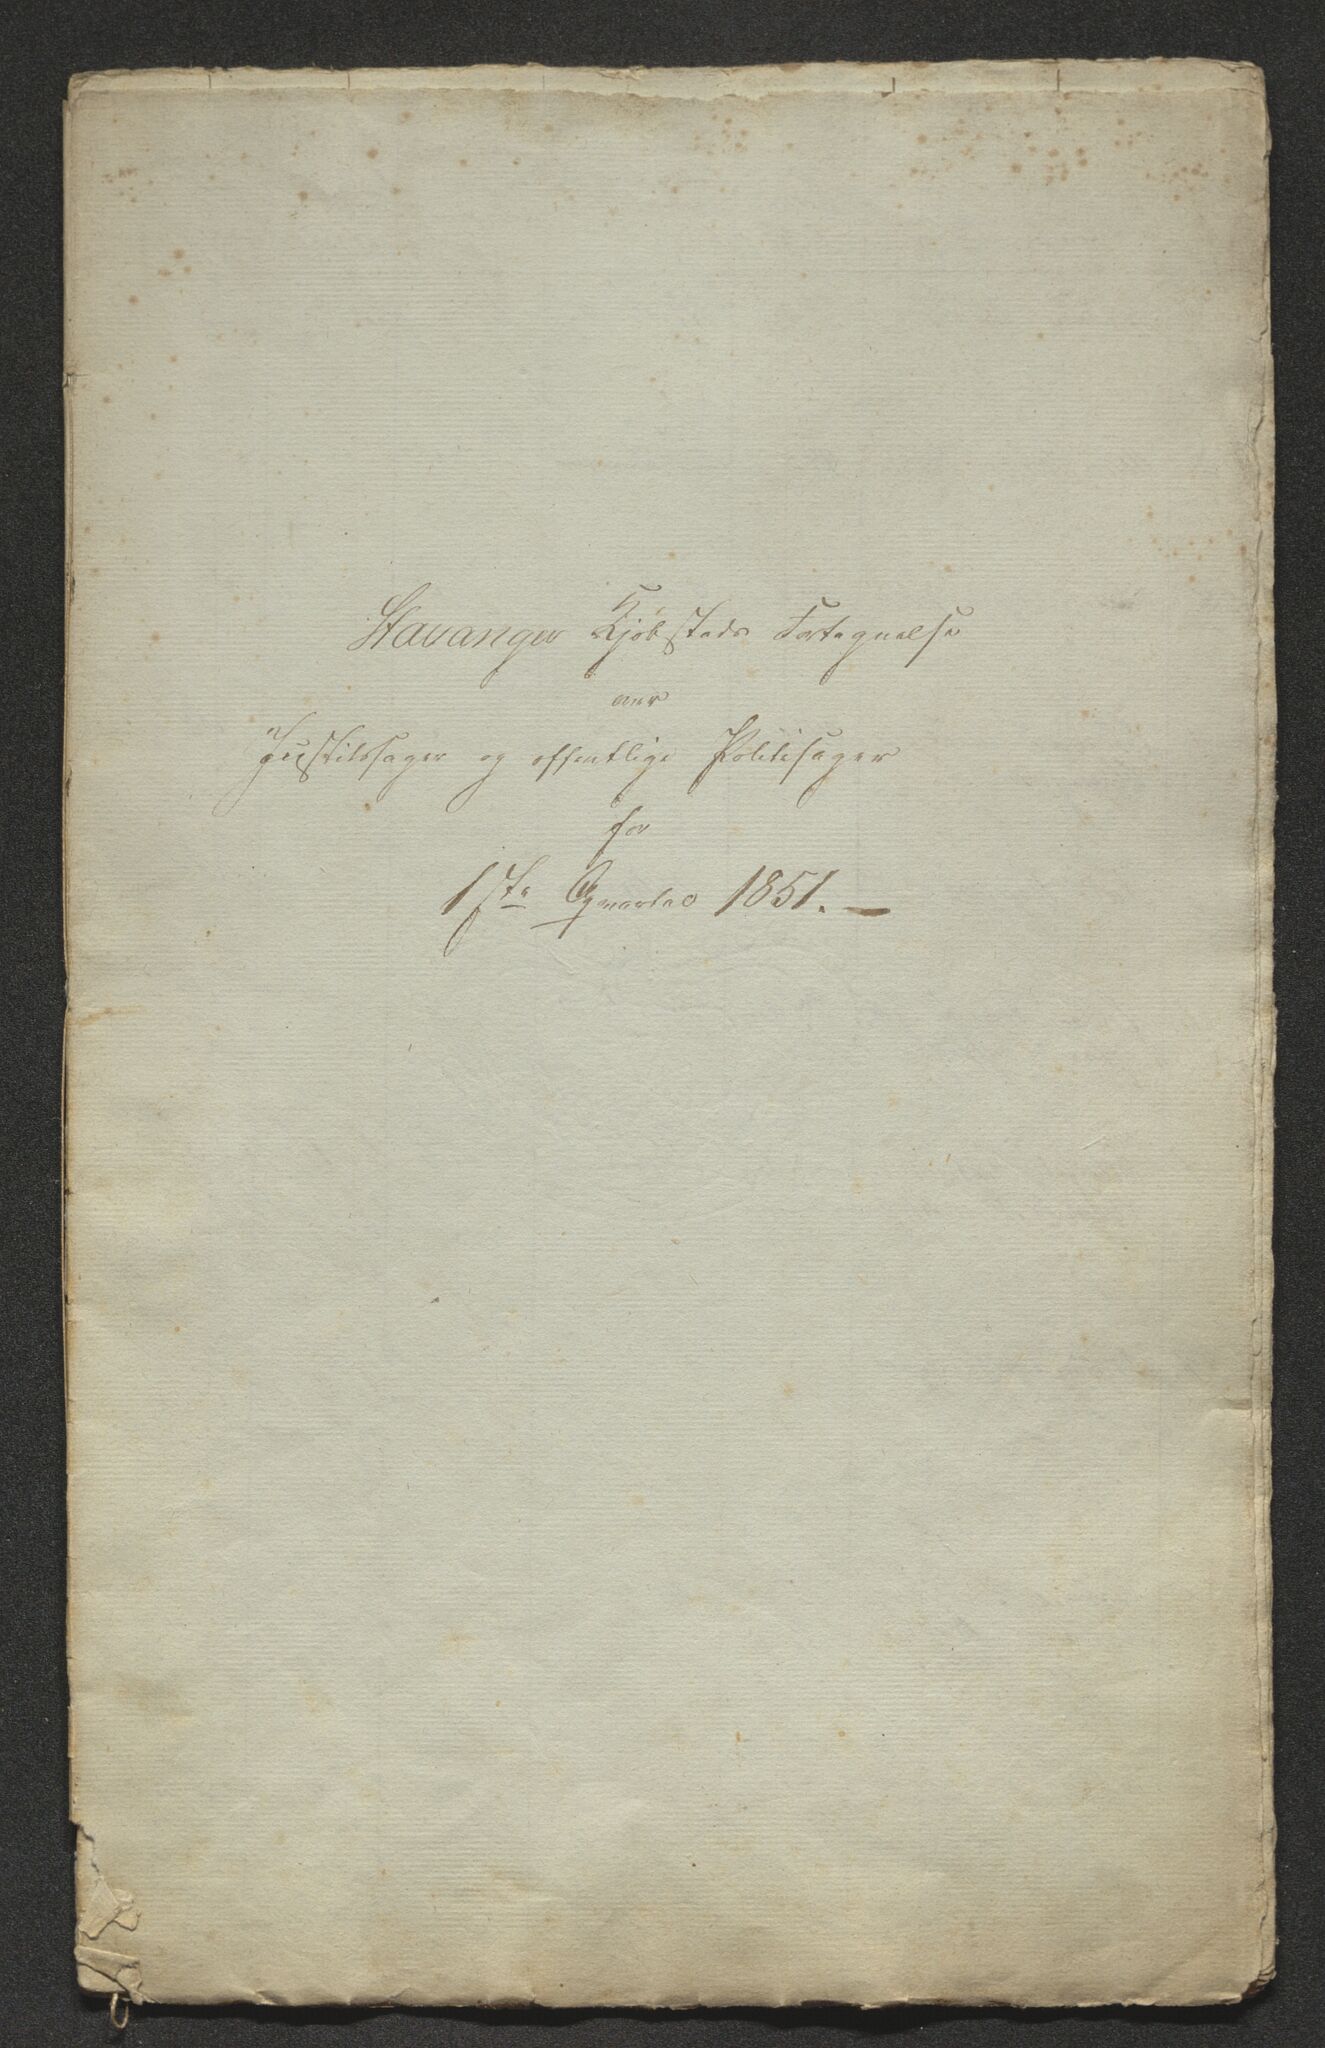 Stavanger Kjøbstads Fortegnelse
over
Justitssager og offentlige Politisager
for
1ste Qvartal 1851. —